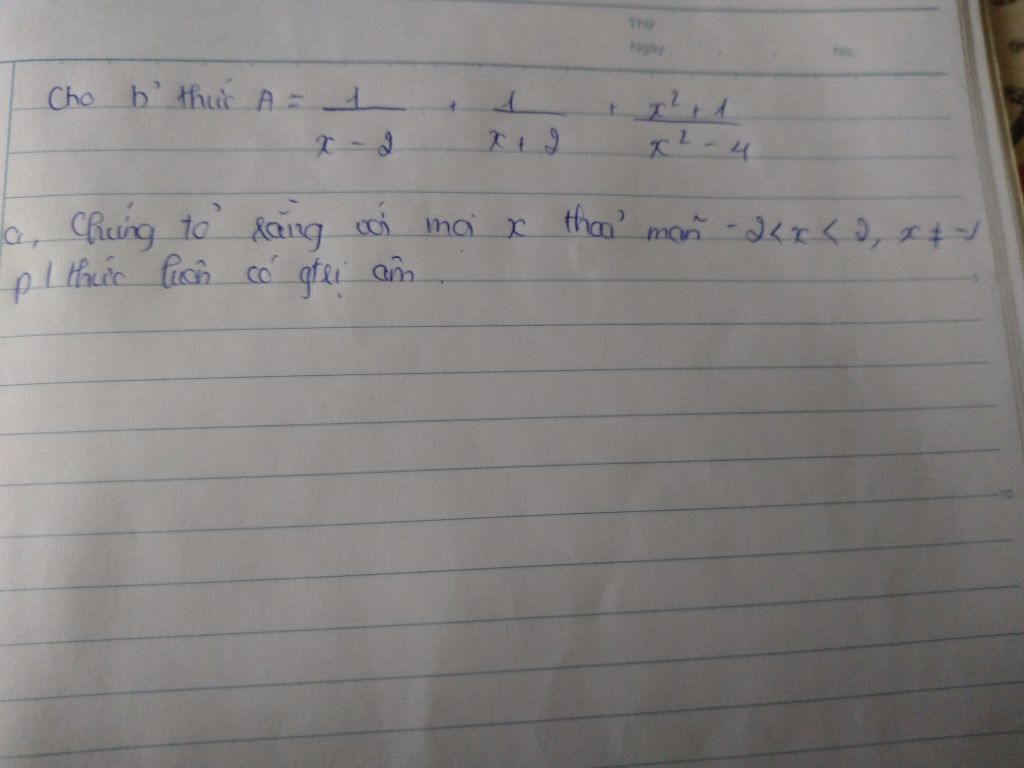 Thứ
Ngày No.
Cho b' thức A = 1/(x - 2) + 1/(x + 2) + (x² + 1)/(x² - 4)
a, Chứng tỏ rằng với mọi x thoả mãn -2 < x < 2, x ≠ -1
p/thức luôn có gtrị âm.
5
10